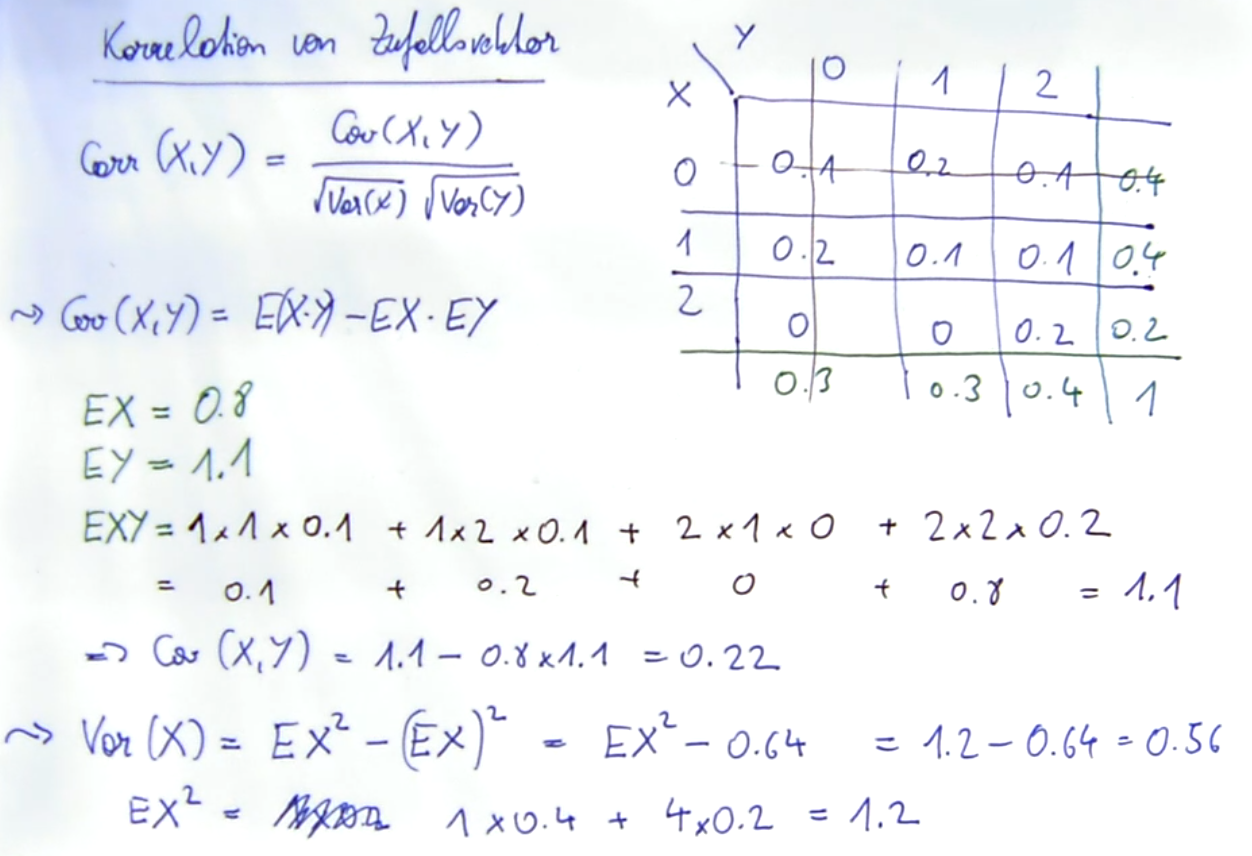 Korrelation von Zufallsvektor
Corr (X,Y) = Cov(X,Y) / √Var(X) √Var(Y)
Y
X
0 1 2
0 0.1 0.2 0.1 0.4
1 0.2 0.1 0.1 0.4
2 0 0 0.2 0.2
0.3 0.3 0.4 1
~> Cov(X,Y) = E(X·Y) - EX · EY
EX = 0.8
EY = 1.1
EXY = 1x1x0.1 + 1x2x0.1 + 2x1x0 + 2x2x0.2
= 0.1 + 0.2 + 0 + 0.8 = 1.1
=> Cov (X,Y) = 1.1 - 0.8x1.1 = 0.22
~> Var (X) = EX² - (EX)² = EX² - 0.64 = 1.2 - 0.64 = 0.56
EX² = 1x0.4 + 4x0.2 = 1.2